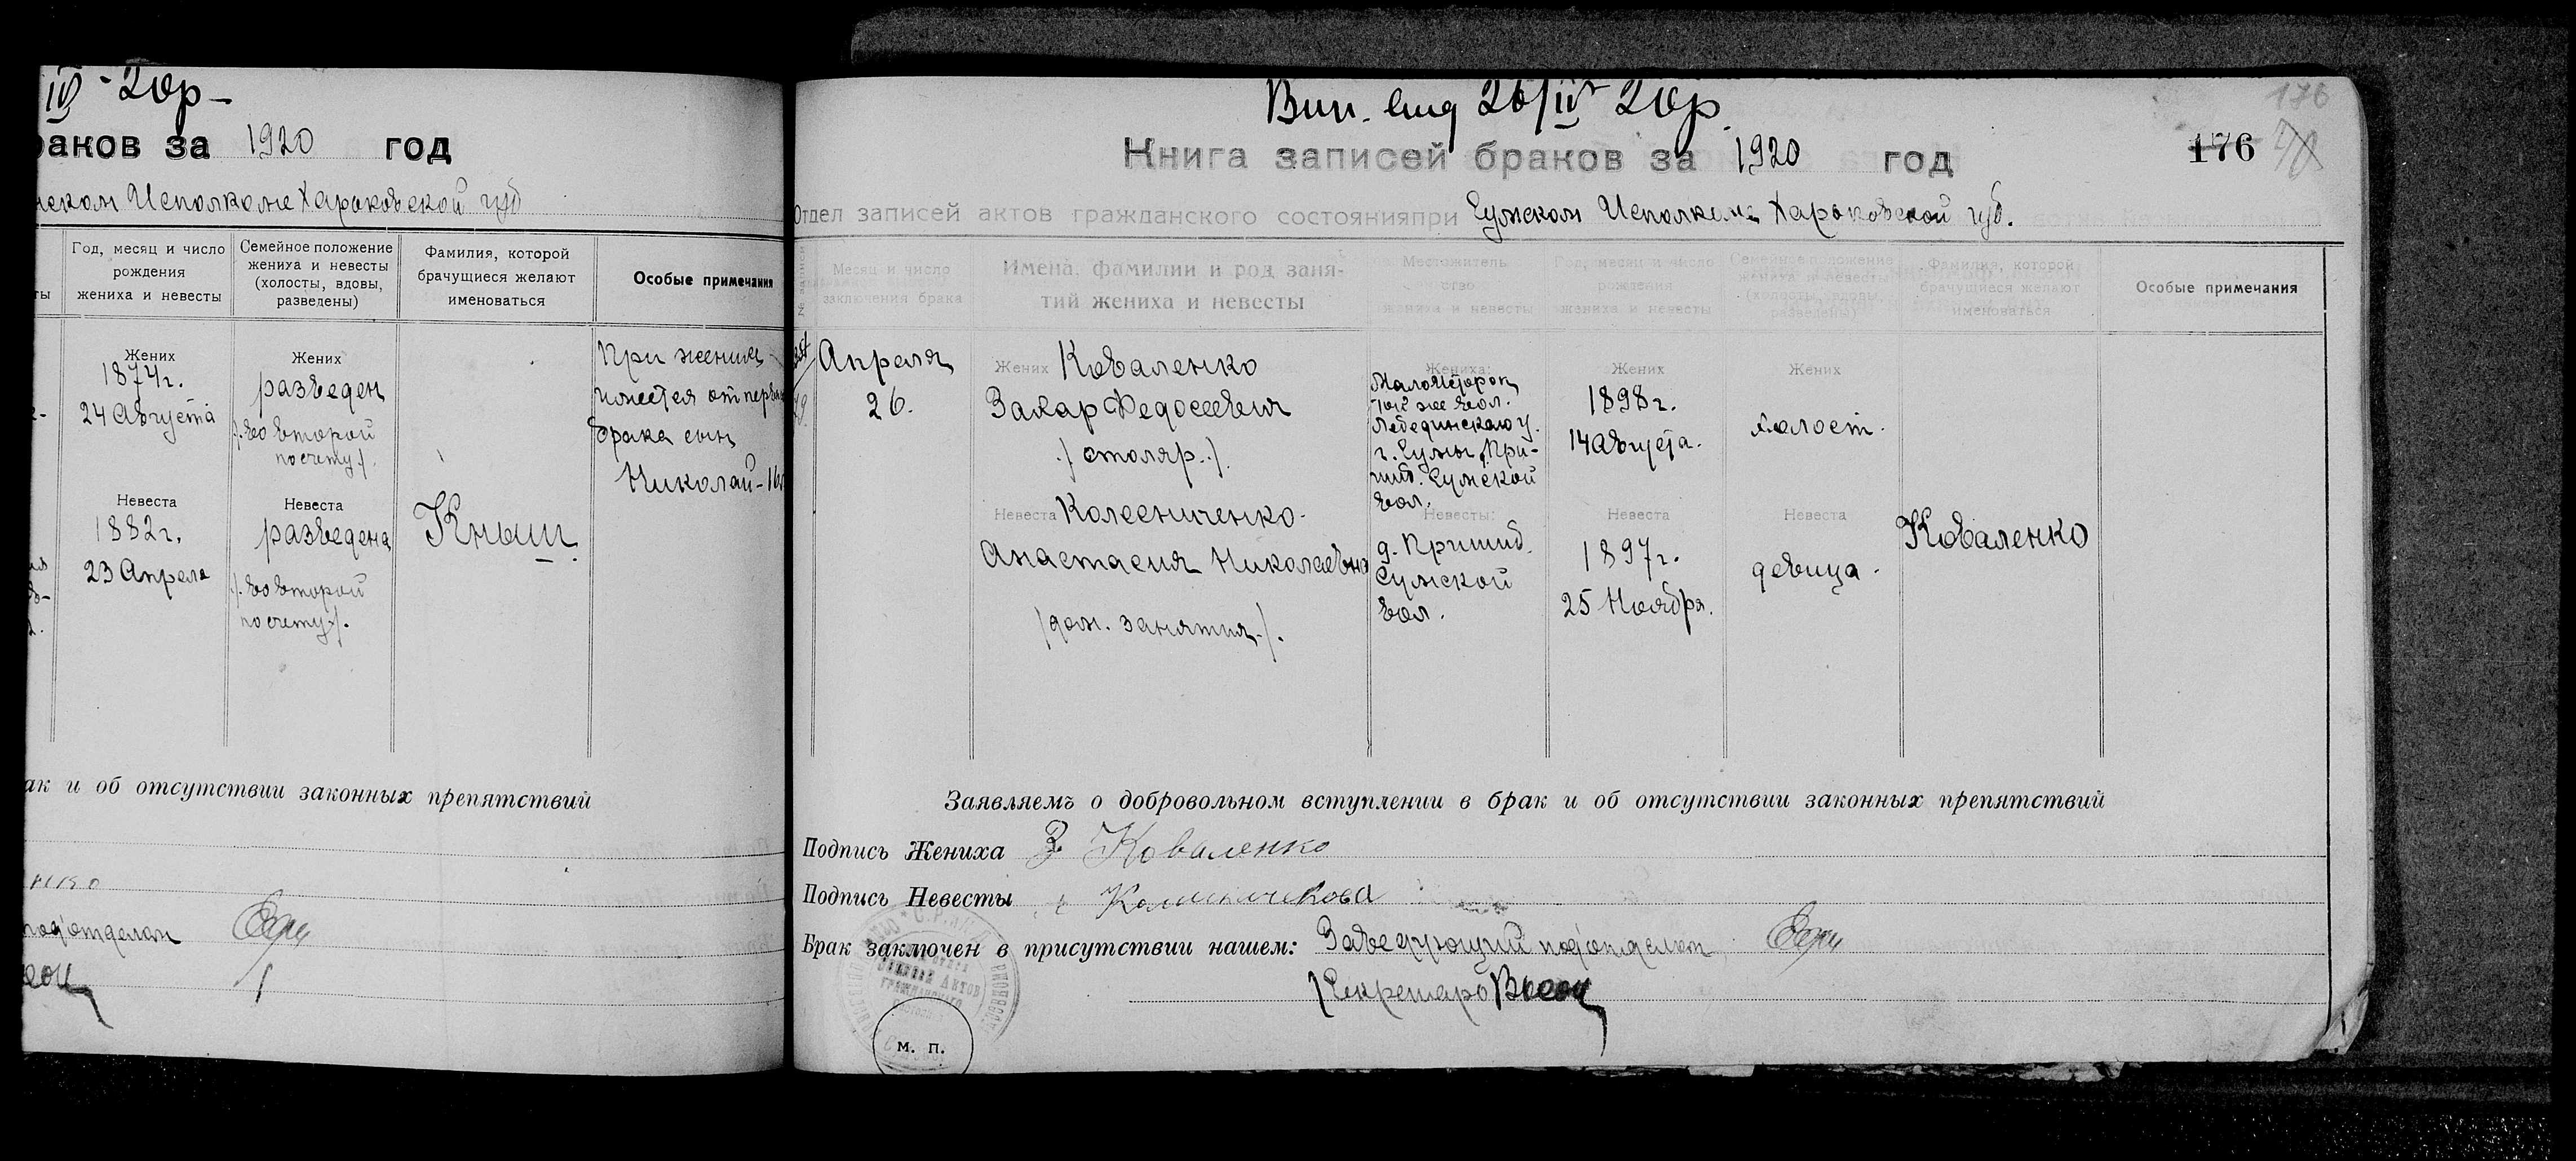 IV - 20р -
раков за 1920 год
Исполкоме Харьковской губ
Год, месяц и число
рождения
жениха и невесты
Семейное положение
жениха и невесты
(холосты, вдовы,
разведены)
Фамилия, которой
брачущиеся желают
именоваться
Особые примечания
Жених
1874 г.
24 Августа
Жених
разведен
/. во второй
по счету /.
При жених
имеется от перв
брака сын
Николай - 16
Невеста
1882 г.
23 Апреля
Невеста
разведена
/. во второй
по счету /.
Кныш
ак и об отсутствии законных препятствий
подотделом
Вип. 26/IV 20р.
Книга записей браков за 1920 год
176
176
Отдел записей актов гражданского состояния при Сумском Исполкоме Харьковской губ.
№ записи
Месяц и число
заключения брака
Имена, фамилии и род заня-
тий жениха и невесты
Местожитель
ство
жениха и невесты
Год, месяц и число
рождения
жениха и невесты
Семейное положение
жениха и невесты
(холосты, вдовы,
разведены)
Фамилия, которой
брачущиеся желают
именоваться
Особые примечания
Апреля
26.
Жених Коваленко
Захар Федосеевич
/ столяр. /.
Жениха:
той же вол.
Лебединского у.
г. Сумы, При-
Сумской
вол.
Жених
1898 г.
14 Августа.
Жених
холост.
Невеста Колесниченко
Анастасия Николаевна
/дом. занятия./.
Невесты:
д. Пришиб.
Сумской
вол.
Невеста
1897 г.
25 Ноября.
Невеста
девица.
Коваленко
Заявляемъ о добровольном вступлении в брак и об отсутствии законных препятствий
Подпись Жениха З Коваленко
Подпись Невесты
Брак заключен в присутствии нашем: Заведующий подотделом
Секретарь
м. п.